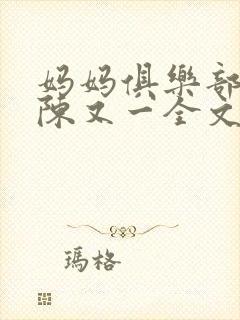 妈妈俱樂部
陳又一全文
瑪格